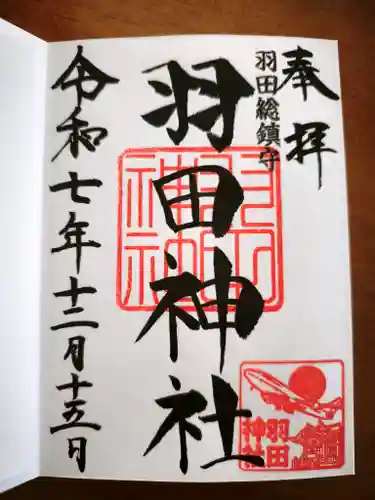 奉拝
羽田総鎮守
羽田神社
羽田神社
羽田神社
令和七年十二月十五日